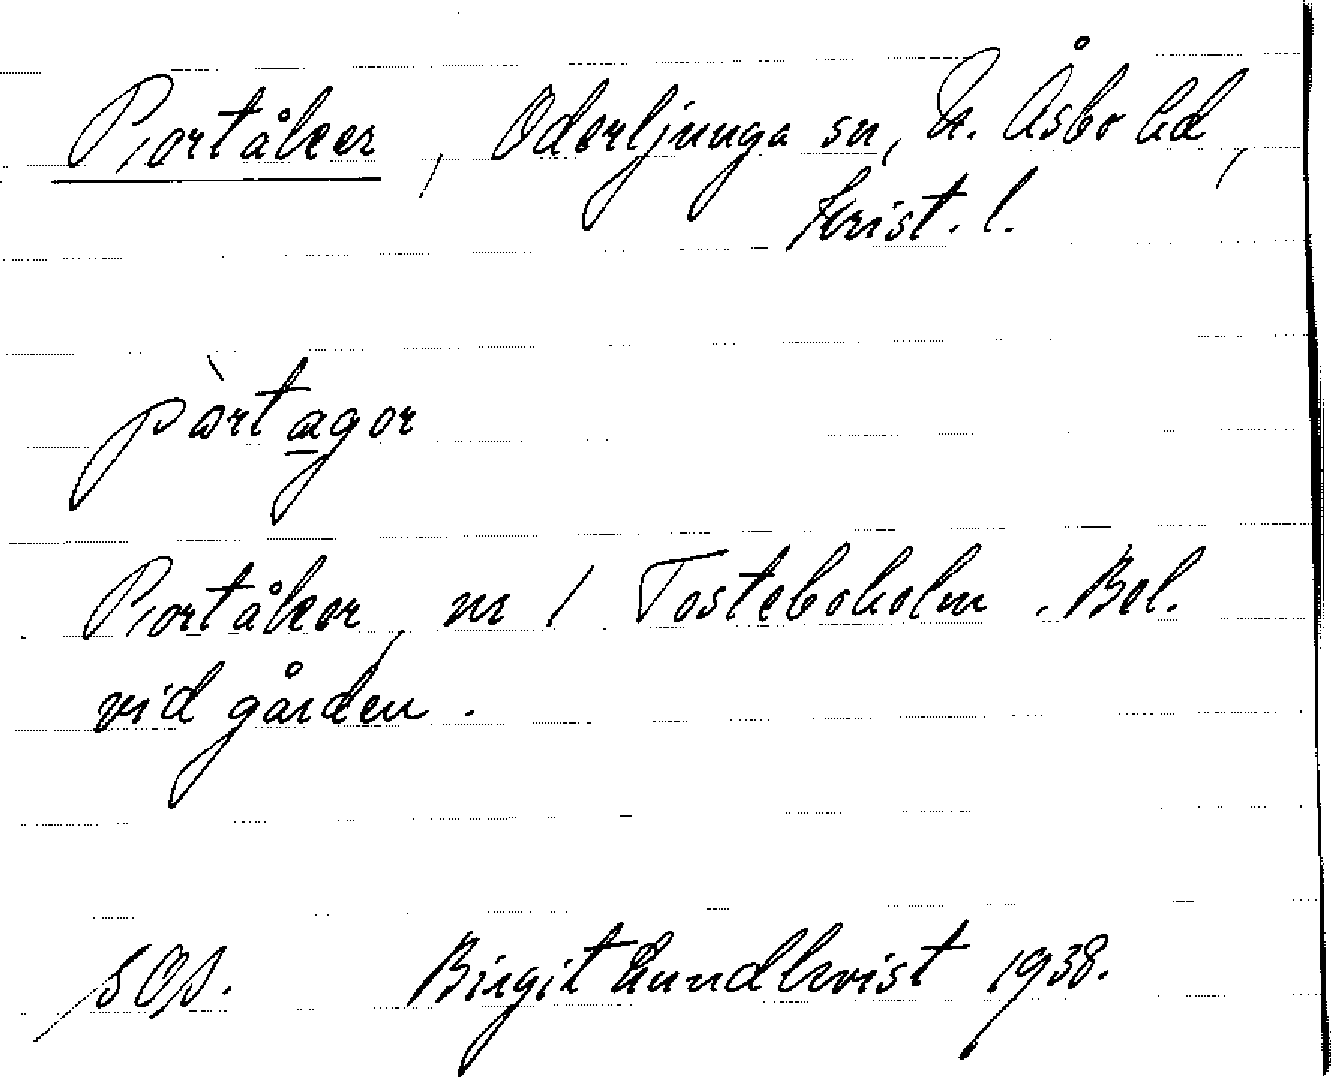 Portåker, Oderljunga sn, N. Åsbo hd,
Krist. l.
pòrtagor
Portåker, nr 1 Tosteboholm. Bel.
vid gården.
SOA. Birgit Lundkvist 1938.